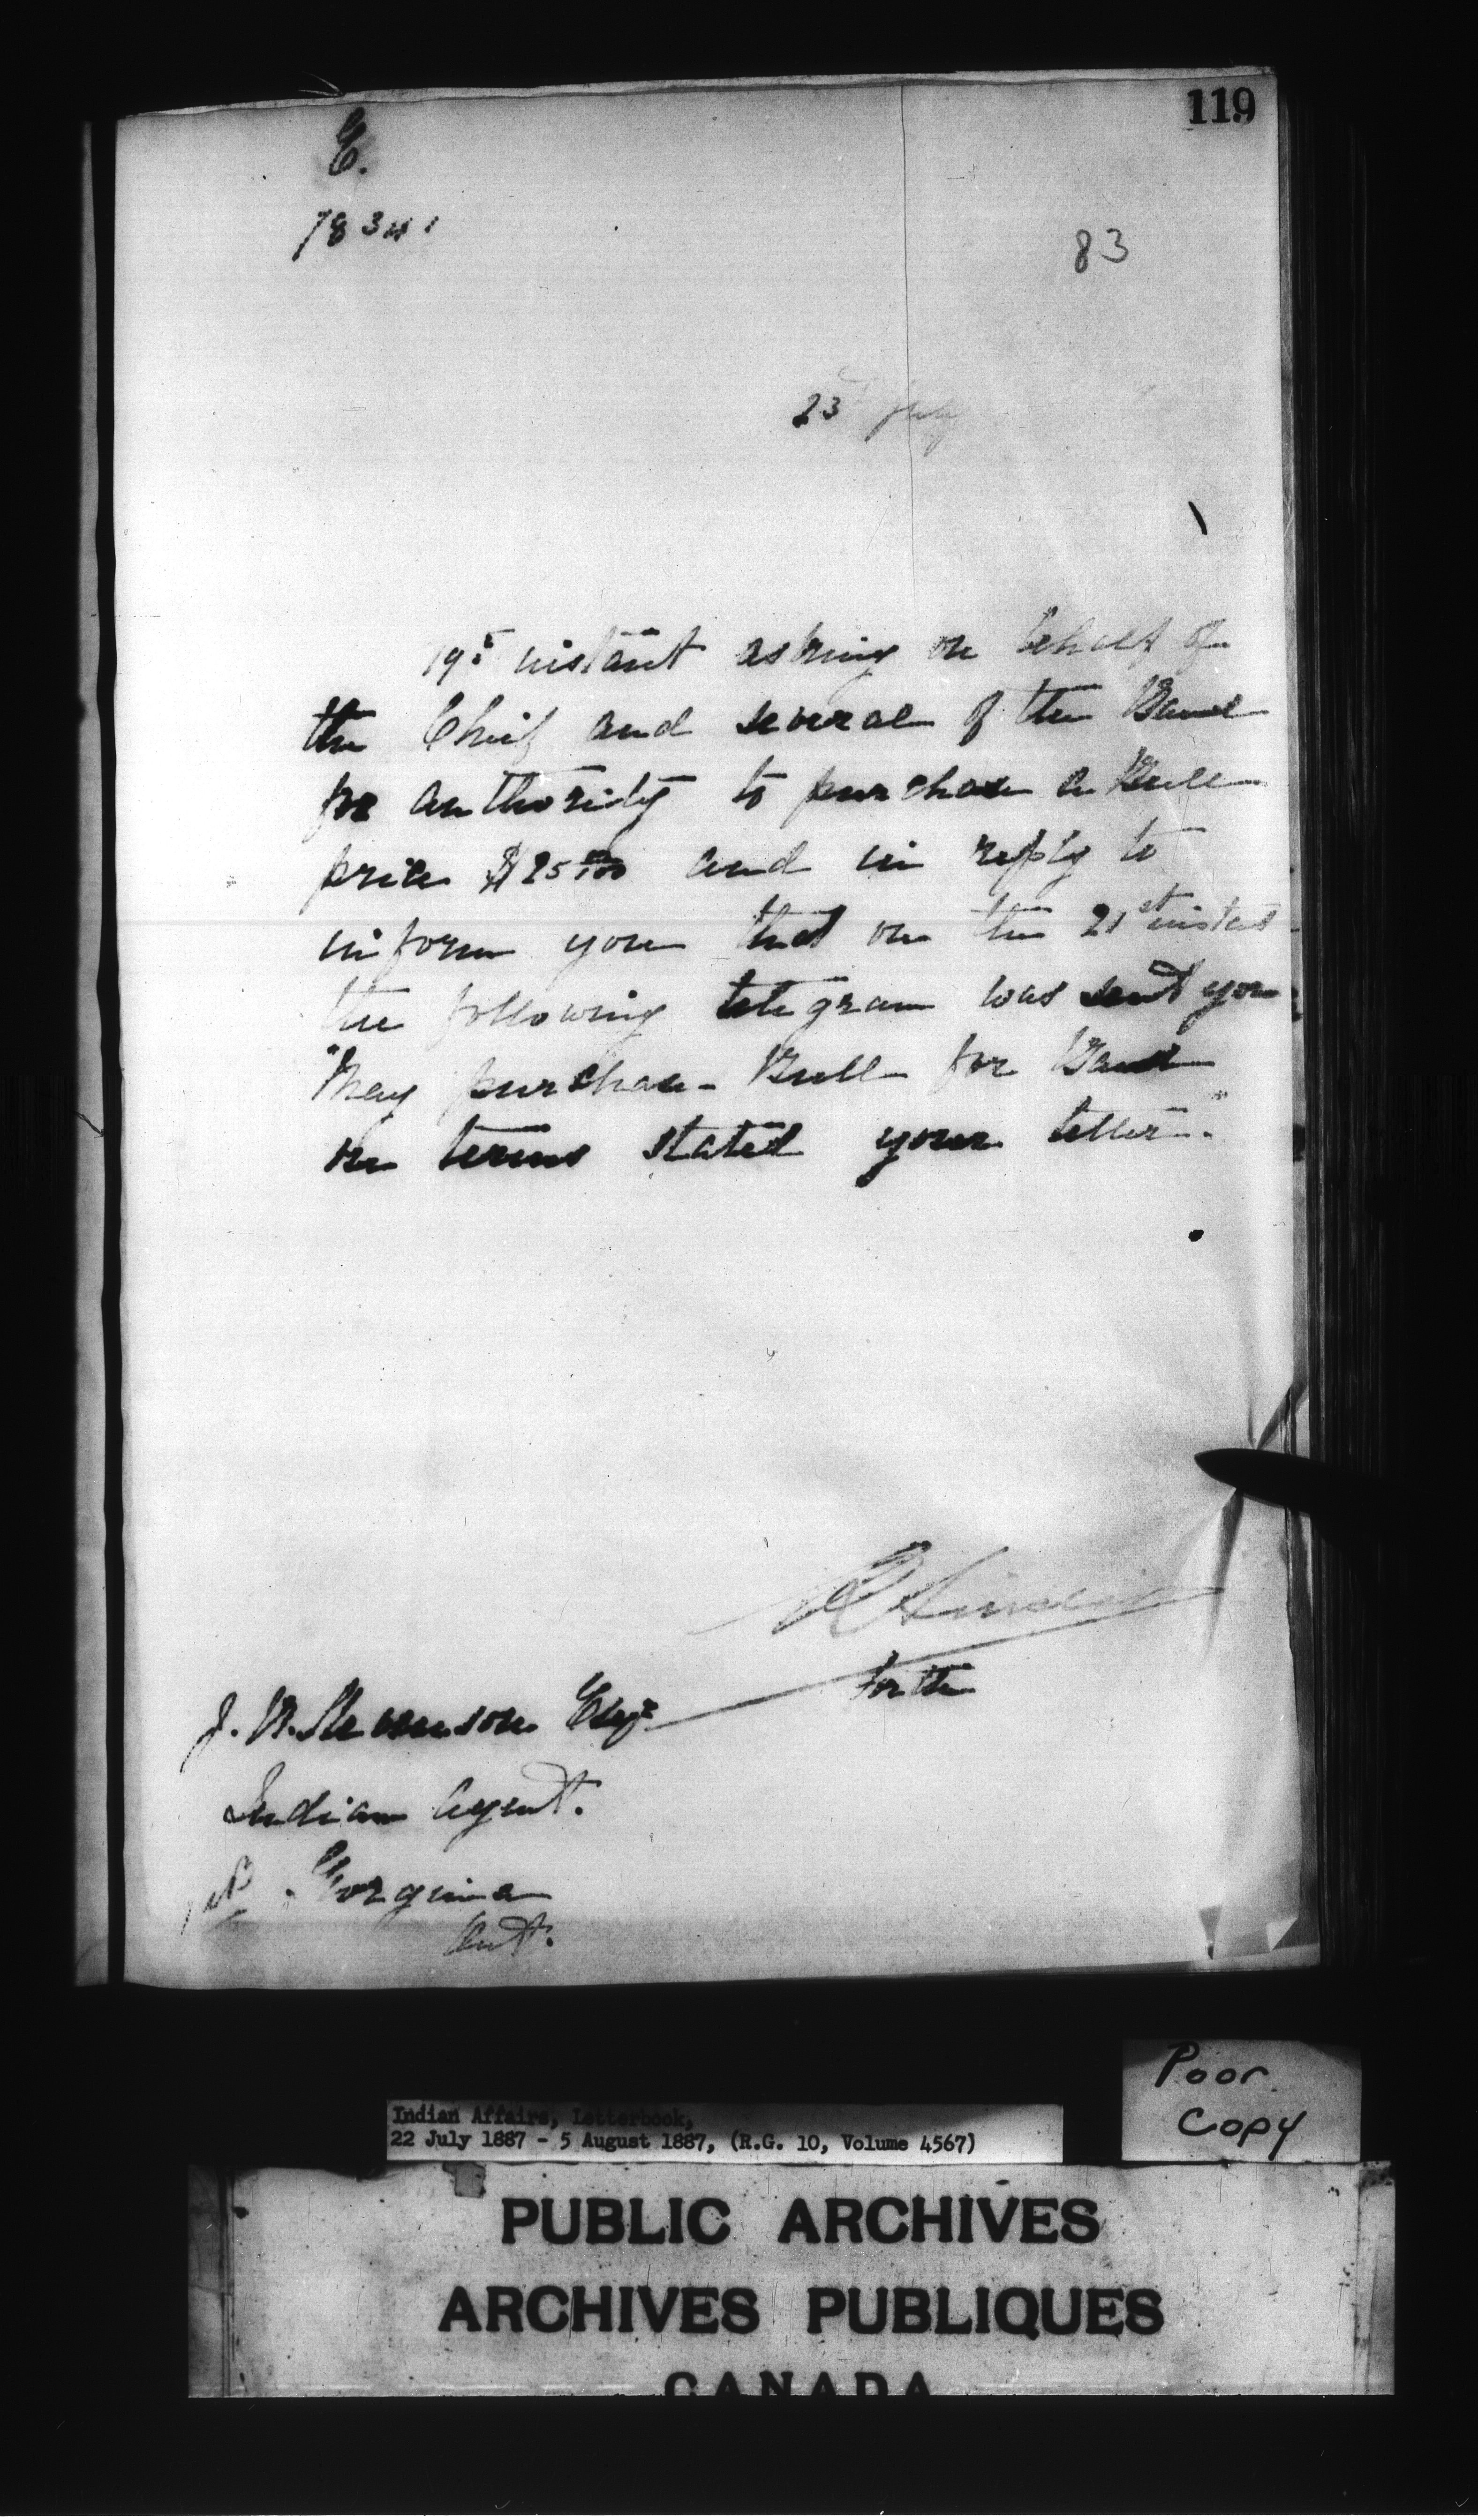 119
E.
78341
83
23d July
19th instant asking on behalf of
the Chief and several of the Band
for authority to purchase a Bull
price $25.00 and in reply to
inform you that on the 21st instant
the following telegram was sent you
"May purchase Bull for Band
on terms stated your letter."
R Sinclair
For the
J. R. Stevenson Esqr
Indian Agent.
Georgina
Ont.
Poor
Copy
Indian Affairs, Letterbook,
22 July 1887 - 5 August 1887, (R.G. 10, Volume 4567)
PUBLIC ARCHIVES
ARCHIVES PUBLIQUES
CANADA